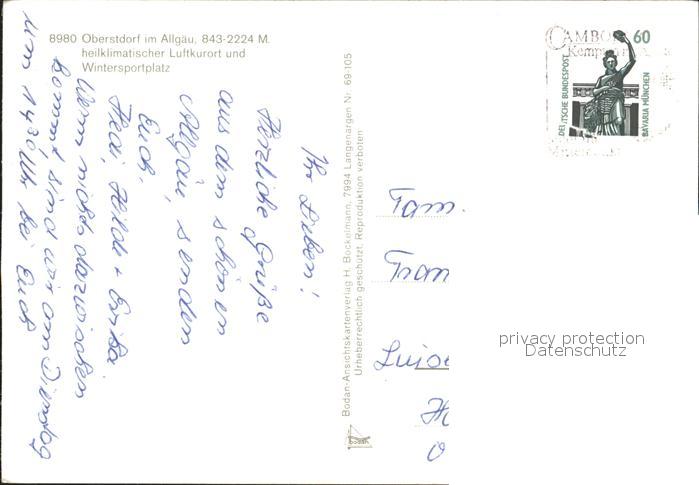 8980 Oberstdorf im Allgäu, 843-2224 M.
heilklimatischer Luftkurort und
Wintersportplatz
Ihr Lieben!
Herzliche Grüße
aus dem schönen
Allgäu, senden
Euch,
Hedi, Hilde + Erika
Wenn nichts dazwischen
kommt sind wir am Dienstag
um 14.30 Uhr bei Euch
Bodan-Ansichtskartenverlag H. Bockelmann, 7994 Langenargen, Nr. 69-105
Urheberrechtlich geschützt, Reproduktion verboten
BODAN
CAMBO
Kempten
60
DEUTSCHE BUNDESPOST
BAVARIA MÜNCHEN
Fam.
Fran
Luise
privacy protection
Datenschutz